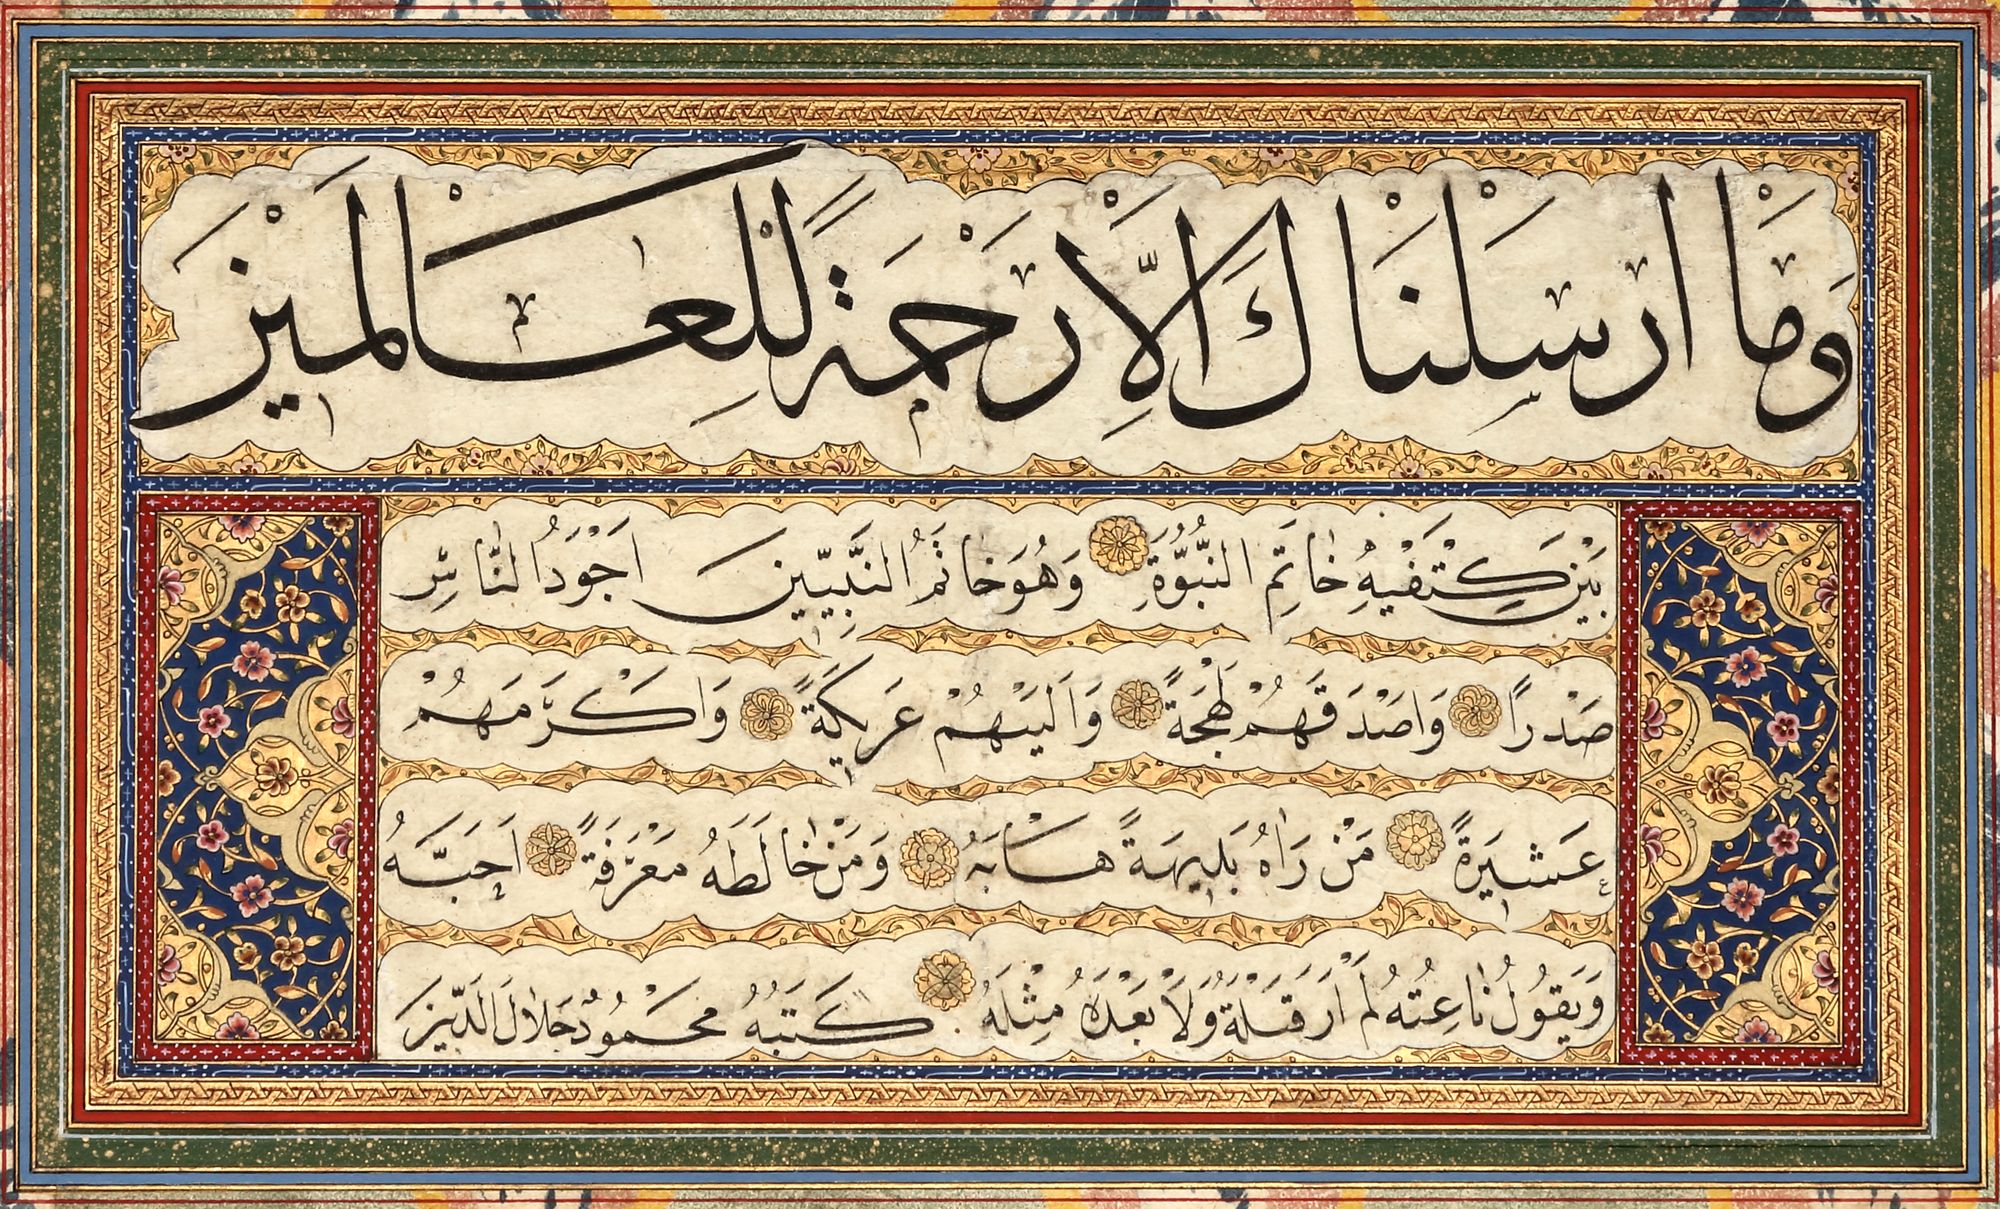 وَمَا اَرْسَلْنَاكَ اِلَّا رَحْمَةً لِلْعَالَمِيْنَ
بَيْنَ كَتِفَيْهِ خَاتِمُ النُّبُوَّةِ وَهُوَ خَاتَمُ النَّبِيّينَ اَجْوَدُ النَّاسِ
صَدْرًا وَاَصْدَقُهُمْ لَهْجَةً وَاَلْيَنُهُمْ عَرِيكَةً وَاَكْرَمُهُمْ
عَشِيرَةً مَنْ رَاٰهُ بَدِيهَةً هَابَهُ وَمَنْ خَالَطَهُ مَعْرِفَةً اَحَبَّهُ
وَيَقُولُ نَاعِتُهُ لَمْ اَرَ قَبْلَهُ وَلَا بَعْدَهُ مِثْلَهُ كَتَبَهُ مَحْمُودُ جَلَالُ الدّينِ